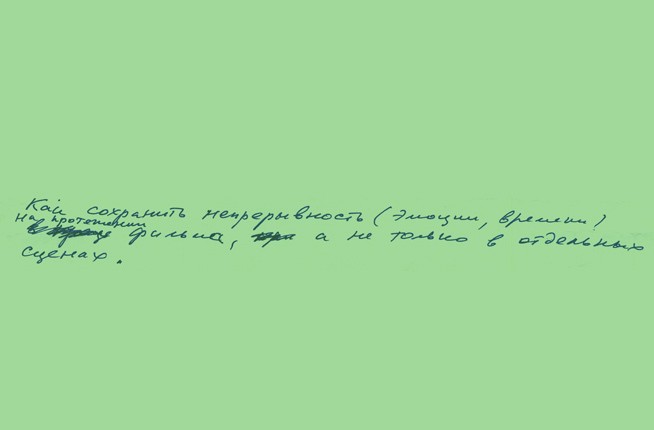 Как сохранить непрерывность (эмоции, времени)
на протяжении
фильма, а не только в отдельных
сценах.